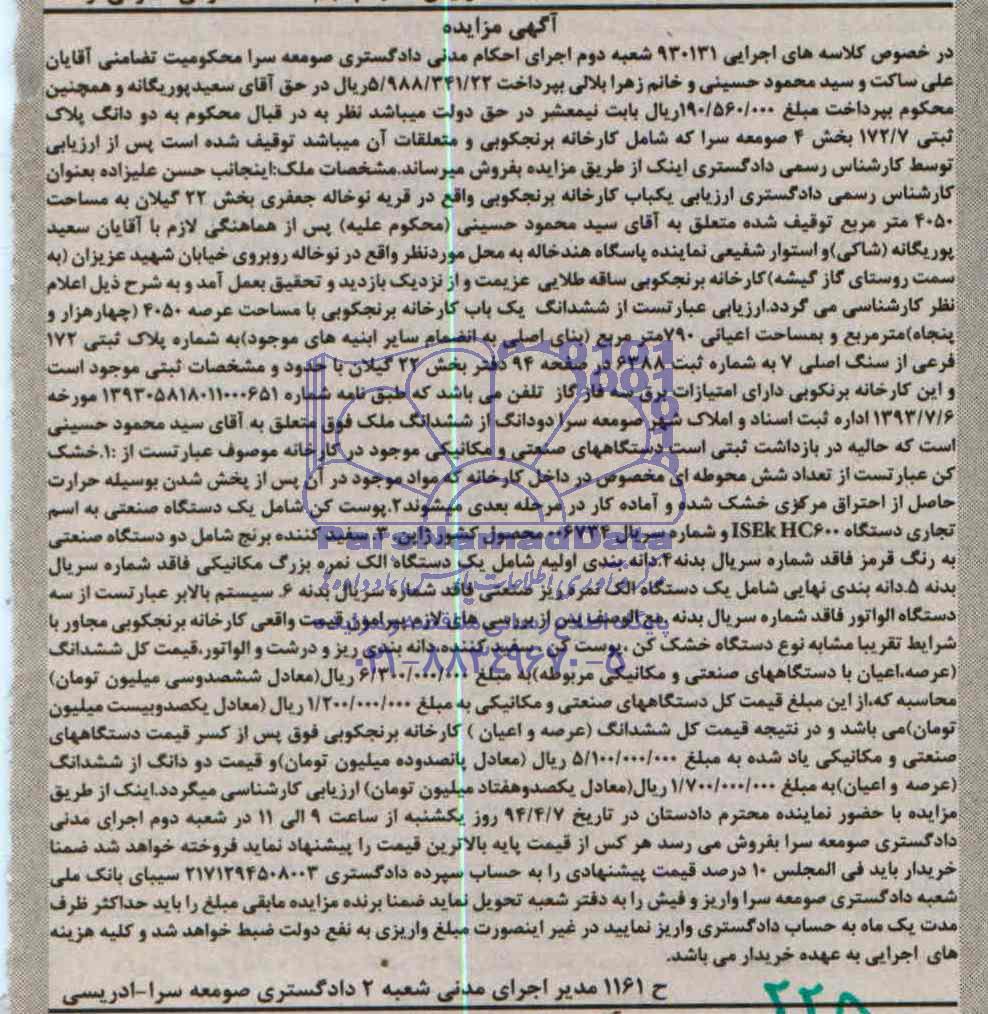 آگهی مزایده
در خصوص کلاسه های اجرایی ۹۳۰۱۳۱ شعبه دوم اجرای احکام مدنی دادگستری صومعه سرا محکومیت تضامنی آقایان
علی ساکت و سید محمود حسینی و خانم زهرا بلالی بپرداخت ۵/۹۸۸/۳۴۱/۲۲ریال در حق آقای سعیدپوریگانه و همچنین
محکوم بپرداخت مبلغ ۱۹۰/۵۶۰/۰۰۰ریال بابت نیمعشر در حق دولت میباشد نظر به در قبال محکوم به دو دانگ پلاک
ثبتی ۱۷۲/۷ بخش ۴ صومعه سرا که شامل کارخانه برنجکوبی و متعلقات آن میباشد توقیف شده است پس از ارزیابی
توسط کارشناس رسمی دادگستری اینک از طریق مزایده بفروش میرساند.مشخصات ملک:اینجانب حسن علیزاده بعنوان
کارشناس رسمی دادگستری ارزیابی یکباب کارخانه برنجکوبی واقع در قریه نوخاله جعفری بخش ۲۲ گیلان به مساحت
۴۰۵۰ متر مربع توقیف شده متعلق به آقای سید محمود حسینی (محکوم علیه) پس از هماهنگی لازم با آقایان سعید
پوریگانه (شاکی)و استوار شفیعی نماینده پاسگاه هندخاله به محل موردنظر واقع در نوخاله روبروی خیابان شهید عزیزان (به
سمت روستای گاز گیشه)کارخانه برنجکوبی ساقه طلایی عزیمت و از نزدیک بازدید و تحقیق بعمل آمد و به شرح ذیل اعلام
نظر کارشناسی می گردد.ارزیابی عبارتست از ششدانگ یک باب کارخانه برنجکوبی با مساحت عرصه ۴۰۵۰ (چهارهزار و
پنجاه)مترمربع و بمساحت اعیانی ۷۹۰متر مربع (بنای اصلی به انضمام سایر ابنیه های موجود)به شماره پلاک ثبتی ۱۷۲
فرعی از سنگ اصلی ۷ به شماره ثبت ۶۳۸۸ در صفحه ۹۴ دفتر بخش ۲۲ گیلان با حدود و مشخصات ثبتی موجود است
و این کارخانه برنکوبی دارای امتیازات برق سه فاز گاز تلفن می باشد که طبق نامه شماره ۱۳۹۳۰۵۸۱۸۰۱۱۰۰۰۶۵۱ مورخه
۱۳۹۳/۷/۶ اداره ثبت اسناد و املاک شهر صومعه سرا دودانگ از ششدانگ ملک فوق متعلق به آقای سید محمود حسینی
است که حالیه در بازداشت ثبتی است.دستگاههای صنعتی و مکانیکی موجود در کارخانه موصوف عبارتست از :۱.خشک
کن عبارتست از تعداد شش محوطه ای مخصوص در داخل کارخانه که مواد موجود در آن پس از پخش شدن بوسیله حرارت
حاصل از احتراق مرکزی خشک شده و آماده کار در مرحله بعدی میشوند۲.پوست کن شامل یک دستگاه صنعتی به اسم
تجاری دستگاه ISEk HC۶۰۰ و شماره سریال ۰۰۶۷۳۴ محصول کشور ژاپن ۳. سفید کننده برنج شامل دو دستگاه صنعتی
به رنگ قرمز فاقد شماره سریال بدنه۴.دانه بندی اولیه شامل یک دستگاه الک نمره بزرگ مکانیکی فاقد شماره سریال
بدنه ۵.دانه بندی نهایی شامل یک دستگاه الک نمره ریز صنعتی فاقد شماره سریال بدنه ۶. سیستم بالابر عبارتست از سه
دستگاه الواتور فاقد شماره سریال بدنه مع الوصف پس از بررسی های لازم پیرامون قیمت واقعی کارخانه برنجکوبی مجاور با
شرایط تقریبا مشابه نوع دستگاه خشک کن ،پوست کن ، سفید کننده،دانه بندی ریز و درشت و الواتور،قیمت کل ششدانگ
(عرصه،اعیان با دستگاههای صنعتی و مکانیکی مربوطه)به مبلغ ۶/۳۰۰/۰۰۰/۰۰۰ ریال(معادل ششصدوسی میلیون تومان)
محاسبه که،از این مبلغ قیمت کل دستگاههای صنعتی و مکانیکی به مبلغ ۱/۲۰۰/۰۰۰/۰۰۰ ریال (معادل یکصدوبیست میلیون
تومان)می باشد و در نتیجه قیمت کل ششدانگ (عرصه و اعیان ) کارخانه برنجکوبی فوق پس از کسر قیمت دستگاههای
صنعتی و مکانیکی یاد شده به مبلغ ۵/۱۰۰/۰۰۰/۰۰۰ ریال (معادل پانصدوده میلیون تومان)و قیمت دو دانگ از ششدانگ
(عرصه و اعیان)به مبلغ ۱/۷۰۰/۰۰۰/۰۰۰ ریال(معادل یکصدوهفتاد میلیون تومان) ارزیابی کارشناسی میگردد.اینک از طریق
مزایده با حضور نماینده محترم دادستان در تاریخ ۹۴/۴/۷ روز یکشنبه از ساعت ۹ الی ۱۱ در شعبه دوم اجرای مدنی
دادگستری صومعه سرا بفروش می رسد هر کس از قیمت پایه بالاترین قیمت را پیشنهاد نماید فروخته خواهد شد ضمنا
خریدار باید فی المجلس ۱۰ درصد قیمت پیشنهادی را به حساب سپرده دادگستری ۲۱۷۱۲۹۴۵۰۸۰۰۳ سیبای بانک ملی
شعبه دادگستری صومعه سرا واریز و فیش را به دفتر شعبه تحویل نماید ضمنا برنده مزایده مابقی مبلغ را باید حداکثر ظرف
مدت یک ماه به حساب دادگستری واریز نمایید در غیر اینصورت مبلغ واریزی به نفع دولت ضبط خواهد شد و کلیه هزینه
های اجرایی به عهده خریدار می باشد.
ح ۱۱۶۱ مدیر اجرای مدنی شعبه ۲ دادگستری صومعه سرا-ادریسی
۲۲۵
ParsNamadData
۰۲۱-۸۸۳۴۹۶۷۰-۵